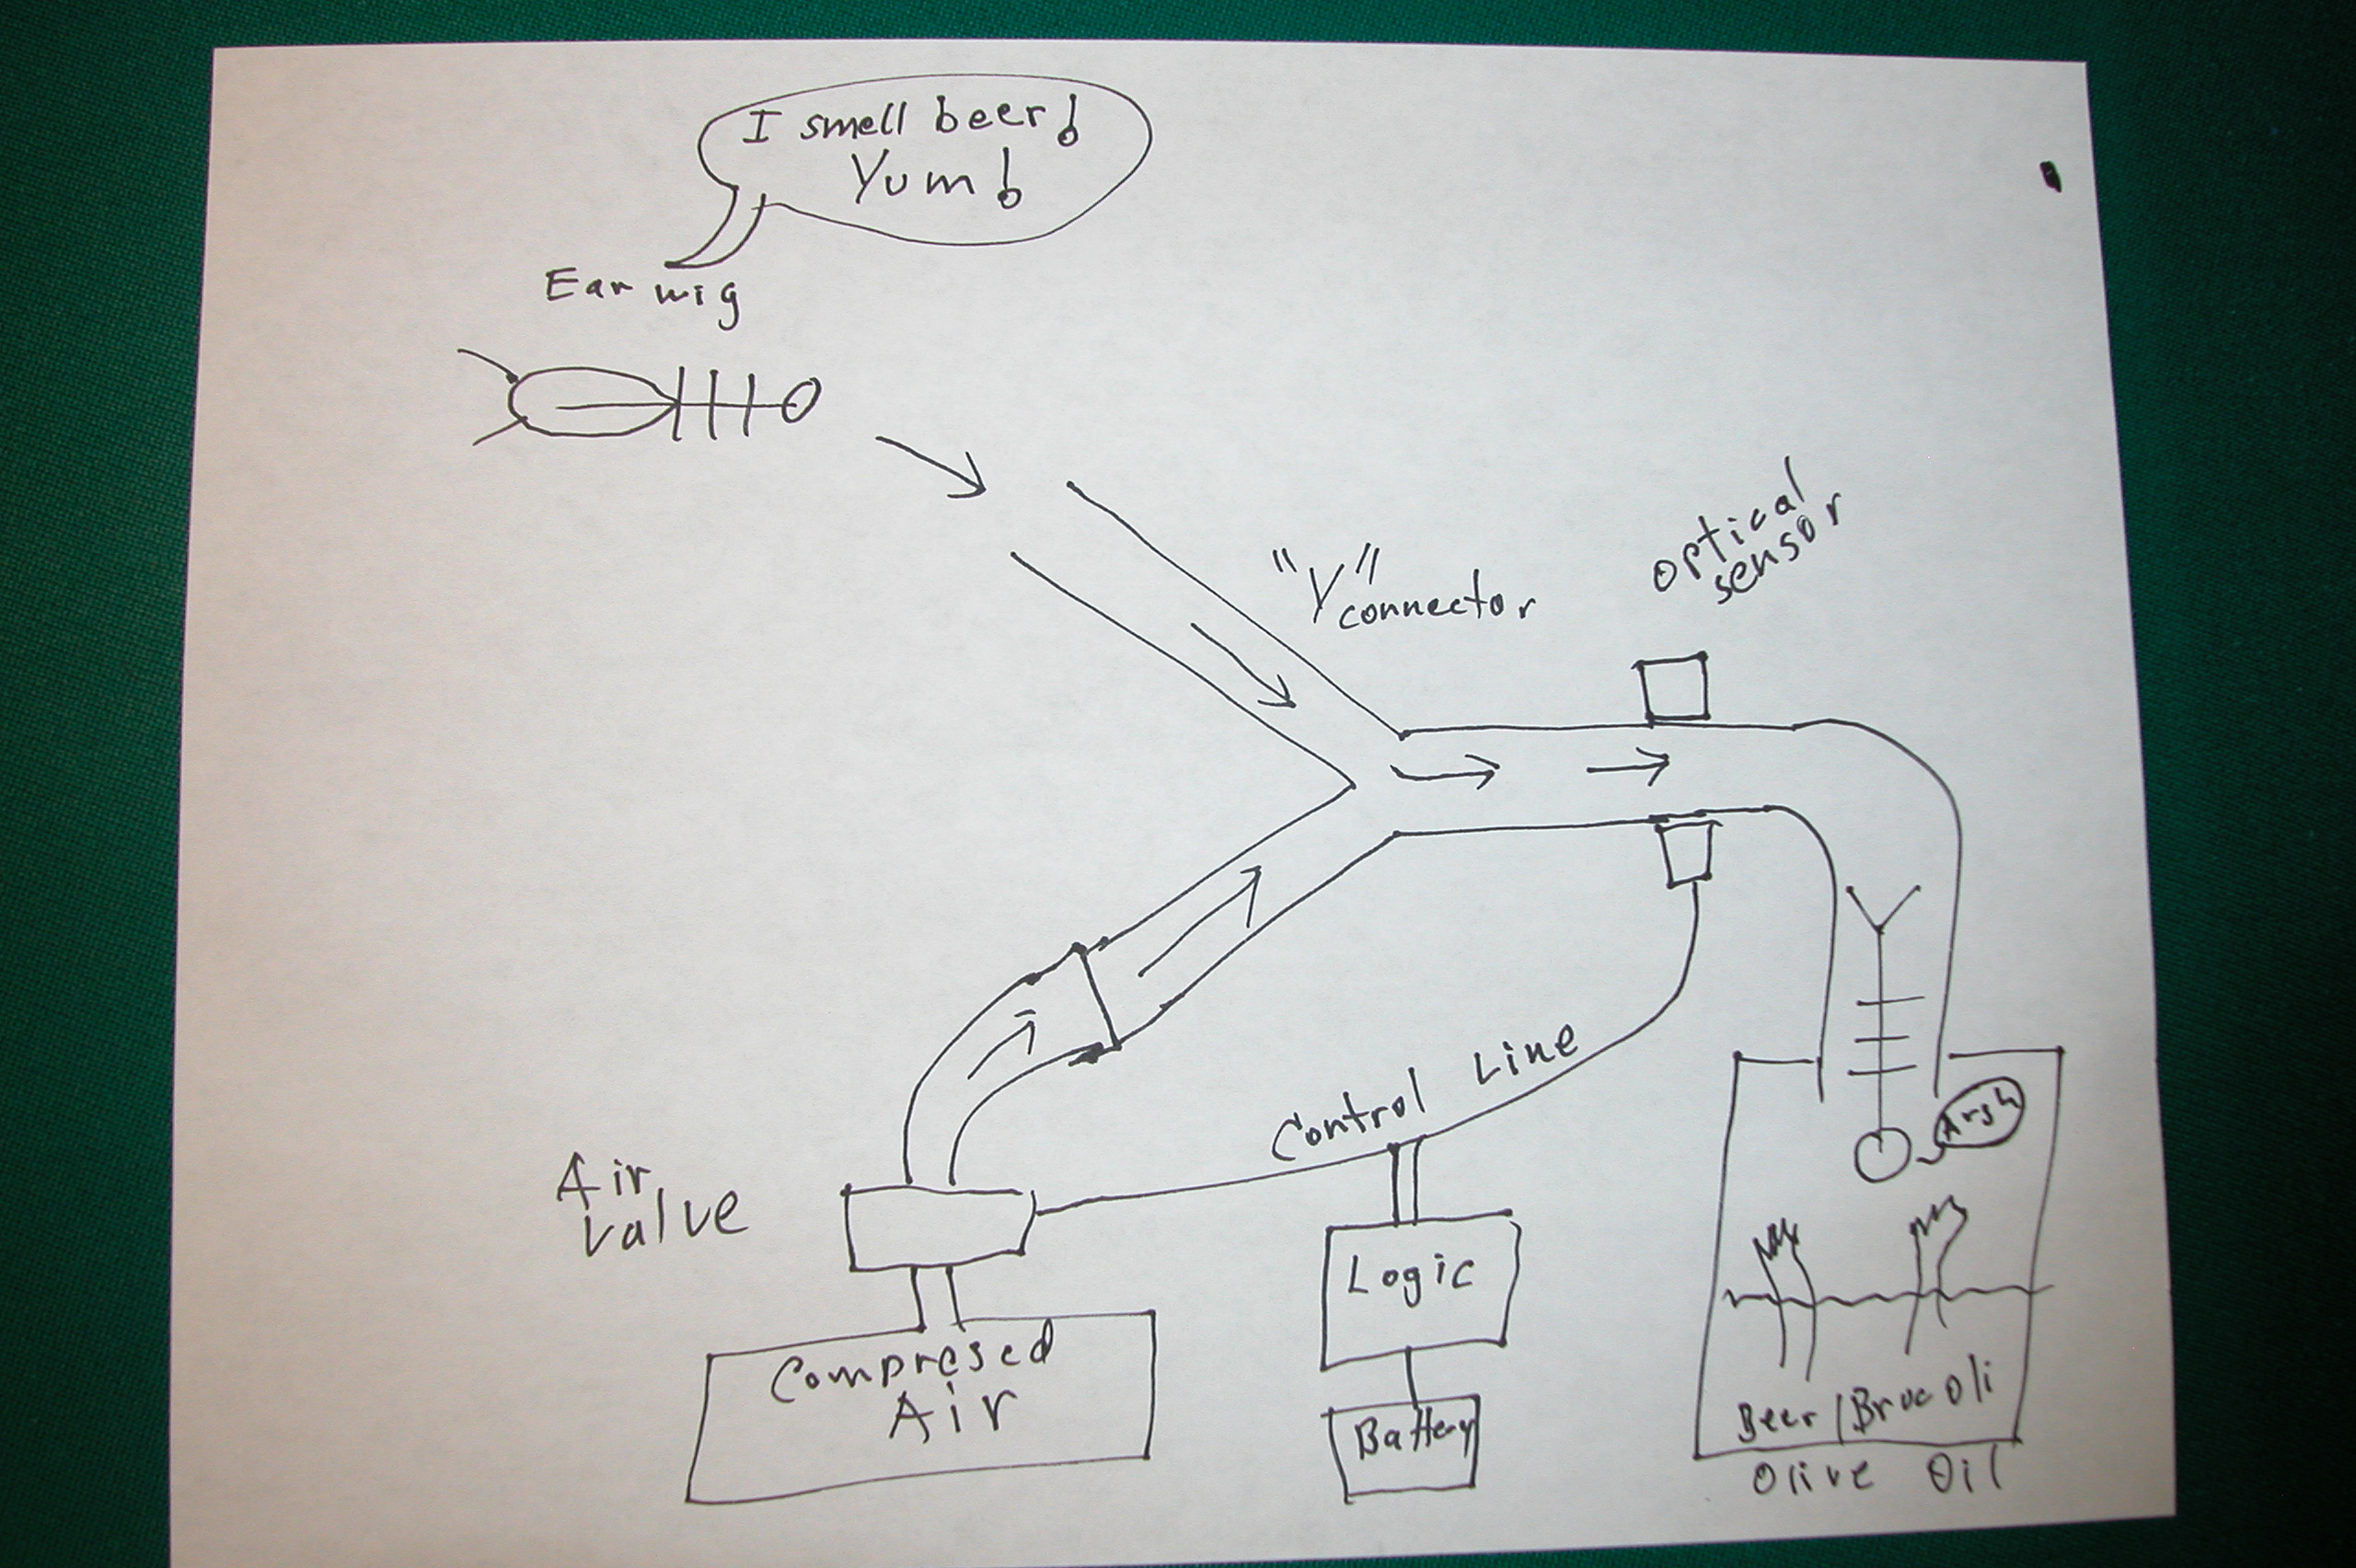 I smell beer!
Yum!
Earwig
"Y"
connector
optical
sensor
Control Line
Air
Valve
Compresed
Air
Logic
Battery
Argh
Beer/Brocoli
Olive Oil